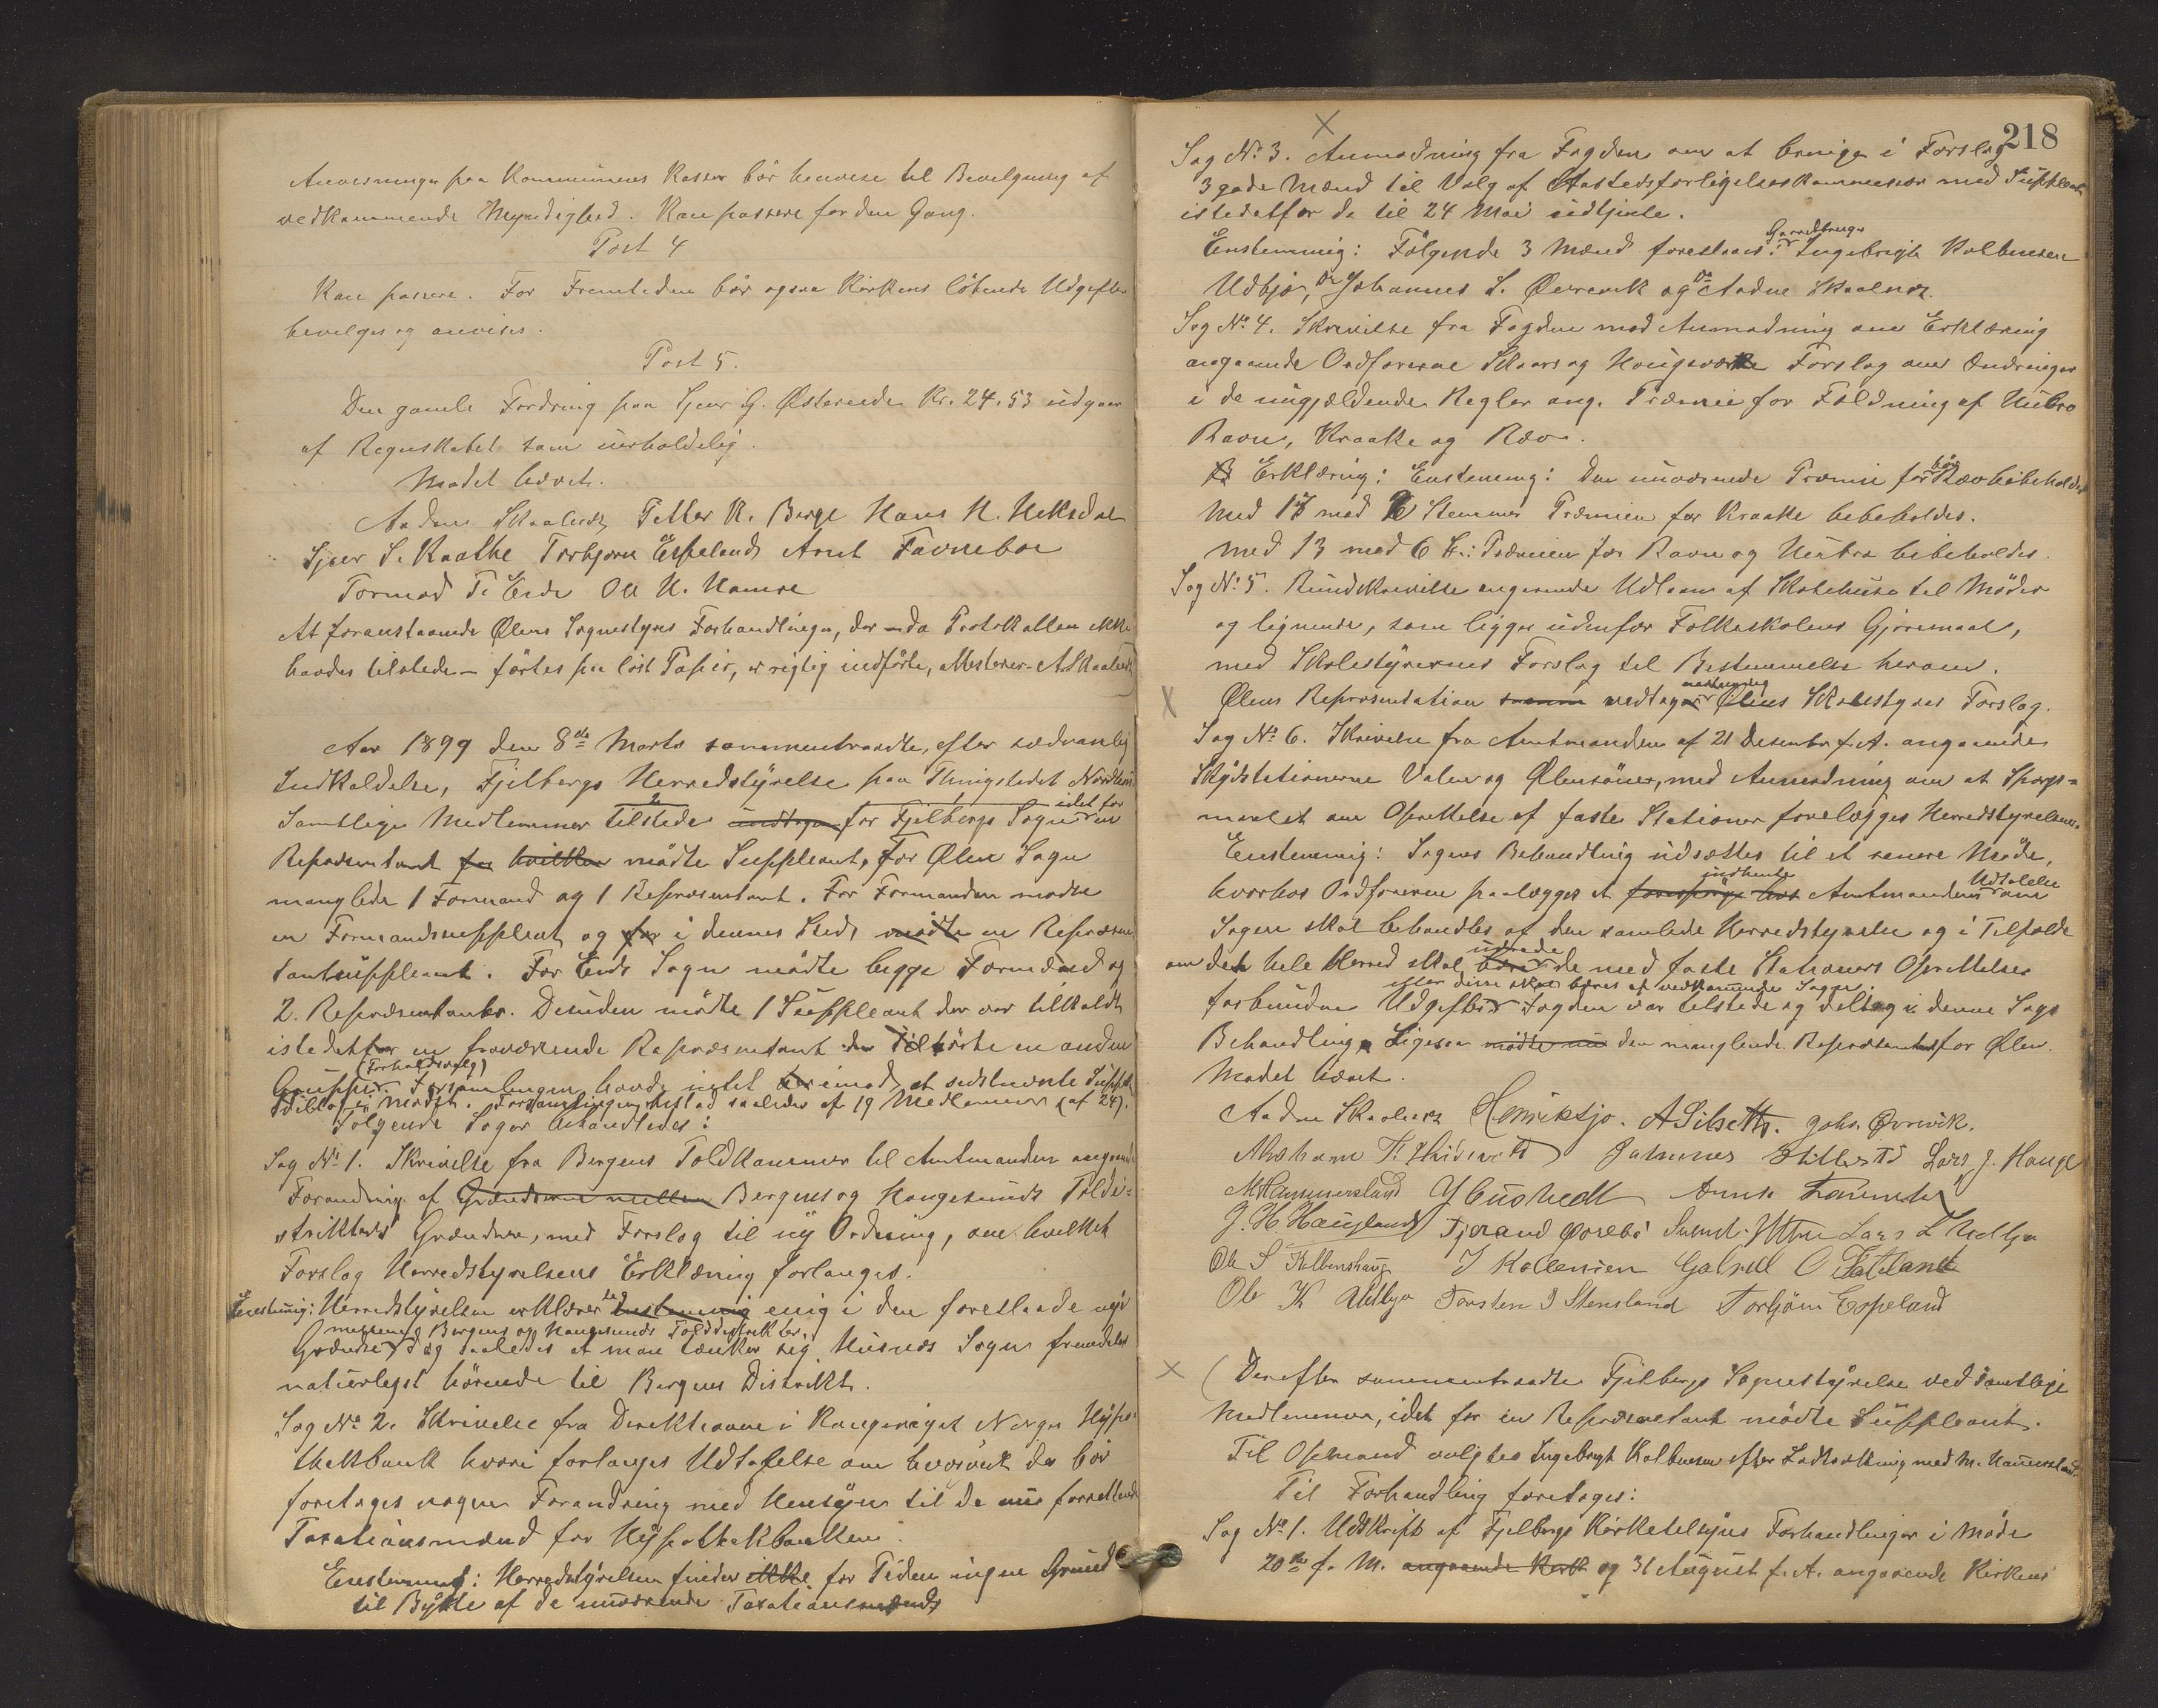 Anvisninger paa Kommunens Kasse bör henvise til Bevilgning af
vedkommende Myndighed. Kan passere for den Gang.
Post 4
Kan passere. For Fremtiden bör ogsaa Kirkens löbende Udgifter
bevilges og anvises.
Post 5.
Den gamle Fordring paa G. Østerende Kr. 24.53 udgaar
af Regnskabet som uerholdelig.
Mödet hævet.
Aadne Skaaluren Petter K. Berge Hans H. Heksdal
Sjur S. Raathe Torbjørn Espeland Arnt Favneboe
Tormod T. Eide Ole H. Hamre
At foranstaaende Ølens Sognestyres Forhandlinger, der – da Protokollen ikke
havdes tilstede – førtes paa löst Papir, er rigtig indførte, attesterer A Skaaluren
Aar 1899 den 8de Marts sammentraadte, efter sædvanlig
Indkaldelse, Fjelbergs Herredstyrelse paa Thingstedet
Samtlige Medlemmer tilstede undtagen for Fjelbergs Sogn idet for en
Repræsentant for hvilken mödte Suppleant, For Ølen Sogn
manglede 1 Formand og 1 Repræsentant. For Formanden mödte
en Formandssuppleant og for i dennes Sted mödte en Repræsen
tantsuppleant. For Eids Sogn mödte begge Formænd og
2 Repræsentanter. Desuden mödte 1 Suppleant der var tilkaldt
istedetfor en fraværende Repræsentant der tilhörte en anden
Gruppe (Forholdsvalg). Forsamlingen havde intet herimod at sidstnævnte Suppleant
deltog i Mödet. Forsamlingen bestod saaledes af 19 Medlemmer (af 24).
Fölgende Sager behandledes:
Sag No 1. Skrivelse fra Bergens Toldkammer til Amtmanden angaaende
Forandring af Grændserne mellem Bergens og Haugesunds Toldi-
strikters Grændser, med Forslag til ny Ordning, om hvilket
Forslag Herredstyrelsens Erklæring forlanges.
Enstemmig: Herredstyrelsen erklærer sig enstemmig enig i den foreslaaede nye
Grændse mellem Bergens og Haugesunds Tolddistrikter, dog saaledes at man tænker sig Husnes Sogn fremdeles
naturligst hörende til Bergens Distrikt.
Sag No 2. Skrivelse fra Direktionen i Kongeriget Norges Hypo-
thekbank hvori forlanges Udtalelse om hvorvidt der bör
foretages nogen Forandring med Hensyn til de nu forrettende
Taxationsmænd for Hypothekbanken.
Enstemmig: Herredstyrelsen finder ikke for Tiden ingen Grund
til Bytte af de nuværende Taxationsmænd.
218
Sag No 3. Anmodning fra Fogden om at bringe i Forslag
3 gode Mænd til Valg af Aastedsforligelseskommission med Suppleant
istedetfor de til 24 Mai udtjente.
Enstemmig: Fölgende 3 Mænd foreslaaes: Gaardbruger Ingebrigt Kolbensen
Udbjo, Do Johannes L. Øvrevik og Do Aadne Skaaluren
Sag No 4. Skrivelse fra Fogden med Anmodning om Erklæring
angaaende Ordförerne Skaars og Forslag om Ændringer
i de nugjældende Regler ang. Præmie for Fældning af Hubro
Ravn, Kraake og Ræv.
Erklæring: Enstemmig: Den nuværende Præmie for Ræv bör bibeholdes
Med 13 mod 6 Stemmer Præmien for Kraake bibeholdes.
med 13 mod 6 St: Præmien for Ravn og Hubro bibeholdes.
Sag No 5. Rundskrivelse angaaende Udlaan af Skolehuse til Möder
og lignende, som ligger udenfor Folkeskolens Gjöremaal,
med Skolestyrernes Forslag til Bestemmelse herom.
Ølens Repræsentation vedtager enstemmig Ølens Skolestyres Forslag.
Sag No 6. Skrivelse fra Amtmanden af 21 Desember f. A. angaaende
Skydsstationerne Valen og Ølensöen, med Anmodning om at Spörgs-
maalet om Oprettelse af faste Stationer forelægges Herredstyrelsen.
Enstemmig: Sagens Behandling udsættes til et senere Möde,
hvorhos Ordföreren paalægges at forespörge hos indhente Amtmandens Udtalelse om
Sagen skal behandles af den samlede Herredstyrelse og i Tilfælde
om det hele Herred skal bære udrede de med faste Stationers Oprettelse
forbundne Udgifter eller disse skal bæres af vedkommende Sogne. Fogden var tilstede og deltog i denne Sags
Behandling. Ligesaa mödte nu den manglende Repræsentant for Ølen.
Mödet hævet.
Aadne Skaaluren Henriksjo. A Silseth. Johs. Øvrevik.
Johannes Lars J. Hauge
M Hammersland
J. H. Haugland Tjerand Lars L Udbjo
Ole S Kolbenshaug I Kolbensen Gabriel O Tateland
Ole K Udbjo Torsten J Stensland Torbjörn Espeland
(Derefter sammentraadte Fjelbergs Sognestyrelse ved samtlige
Medlemmer, idet for en Repræsentant mödte Suppleant.
Til Opmand valgtes Ingebrigt Kolbensen efter Lodtrækning med M. Hammersland.
Til Forhandling foretoges:
Sag No 1. Udskrift af Fjelbergs Kirketilsyns Forhandlinger i Möde
20de f. M. angaaende Kirk og 31 August f. A. angaaende Kirkens